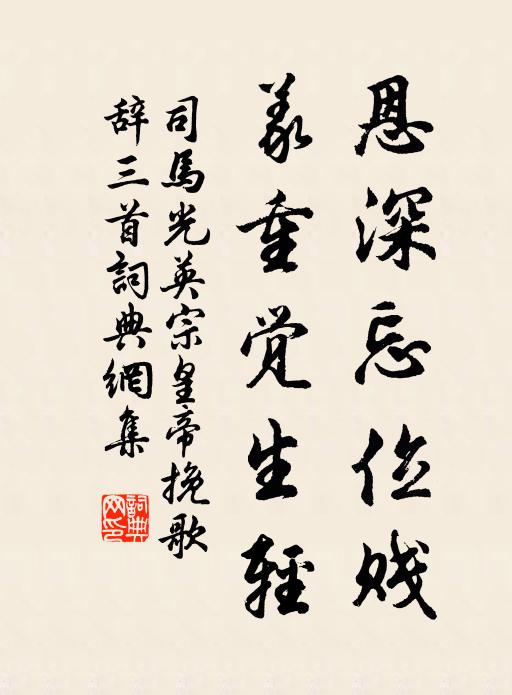 恩深忘位贱
義重觉生輕
司馬光英宗皇帝挽歌
辞三首詞典網集
詞典网印